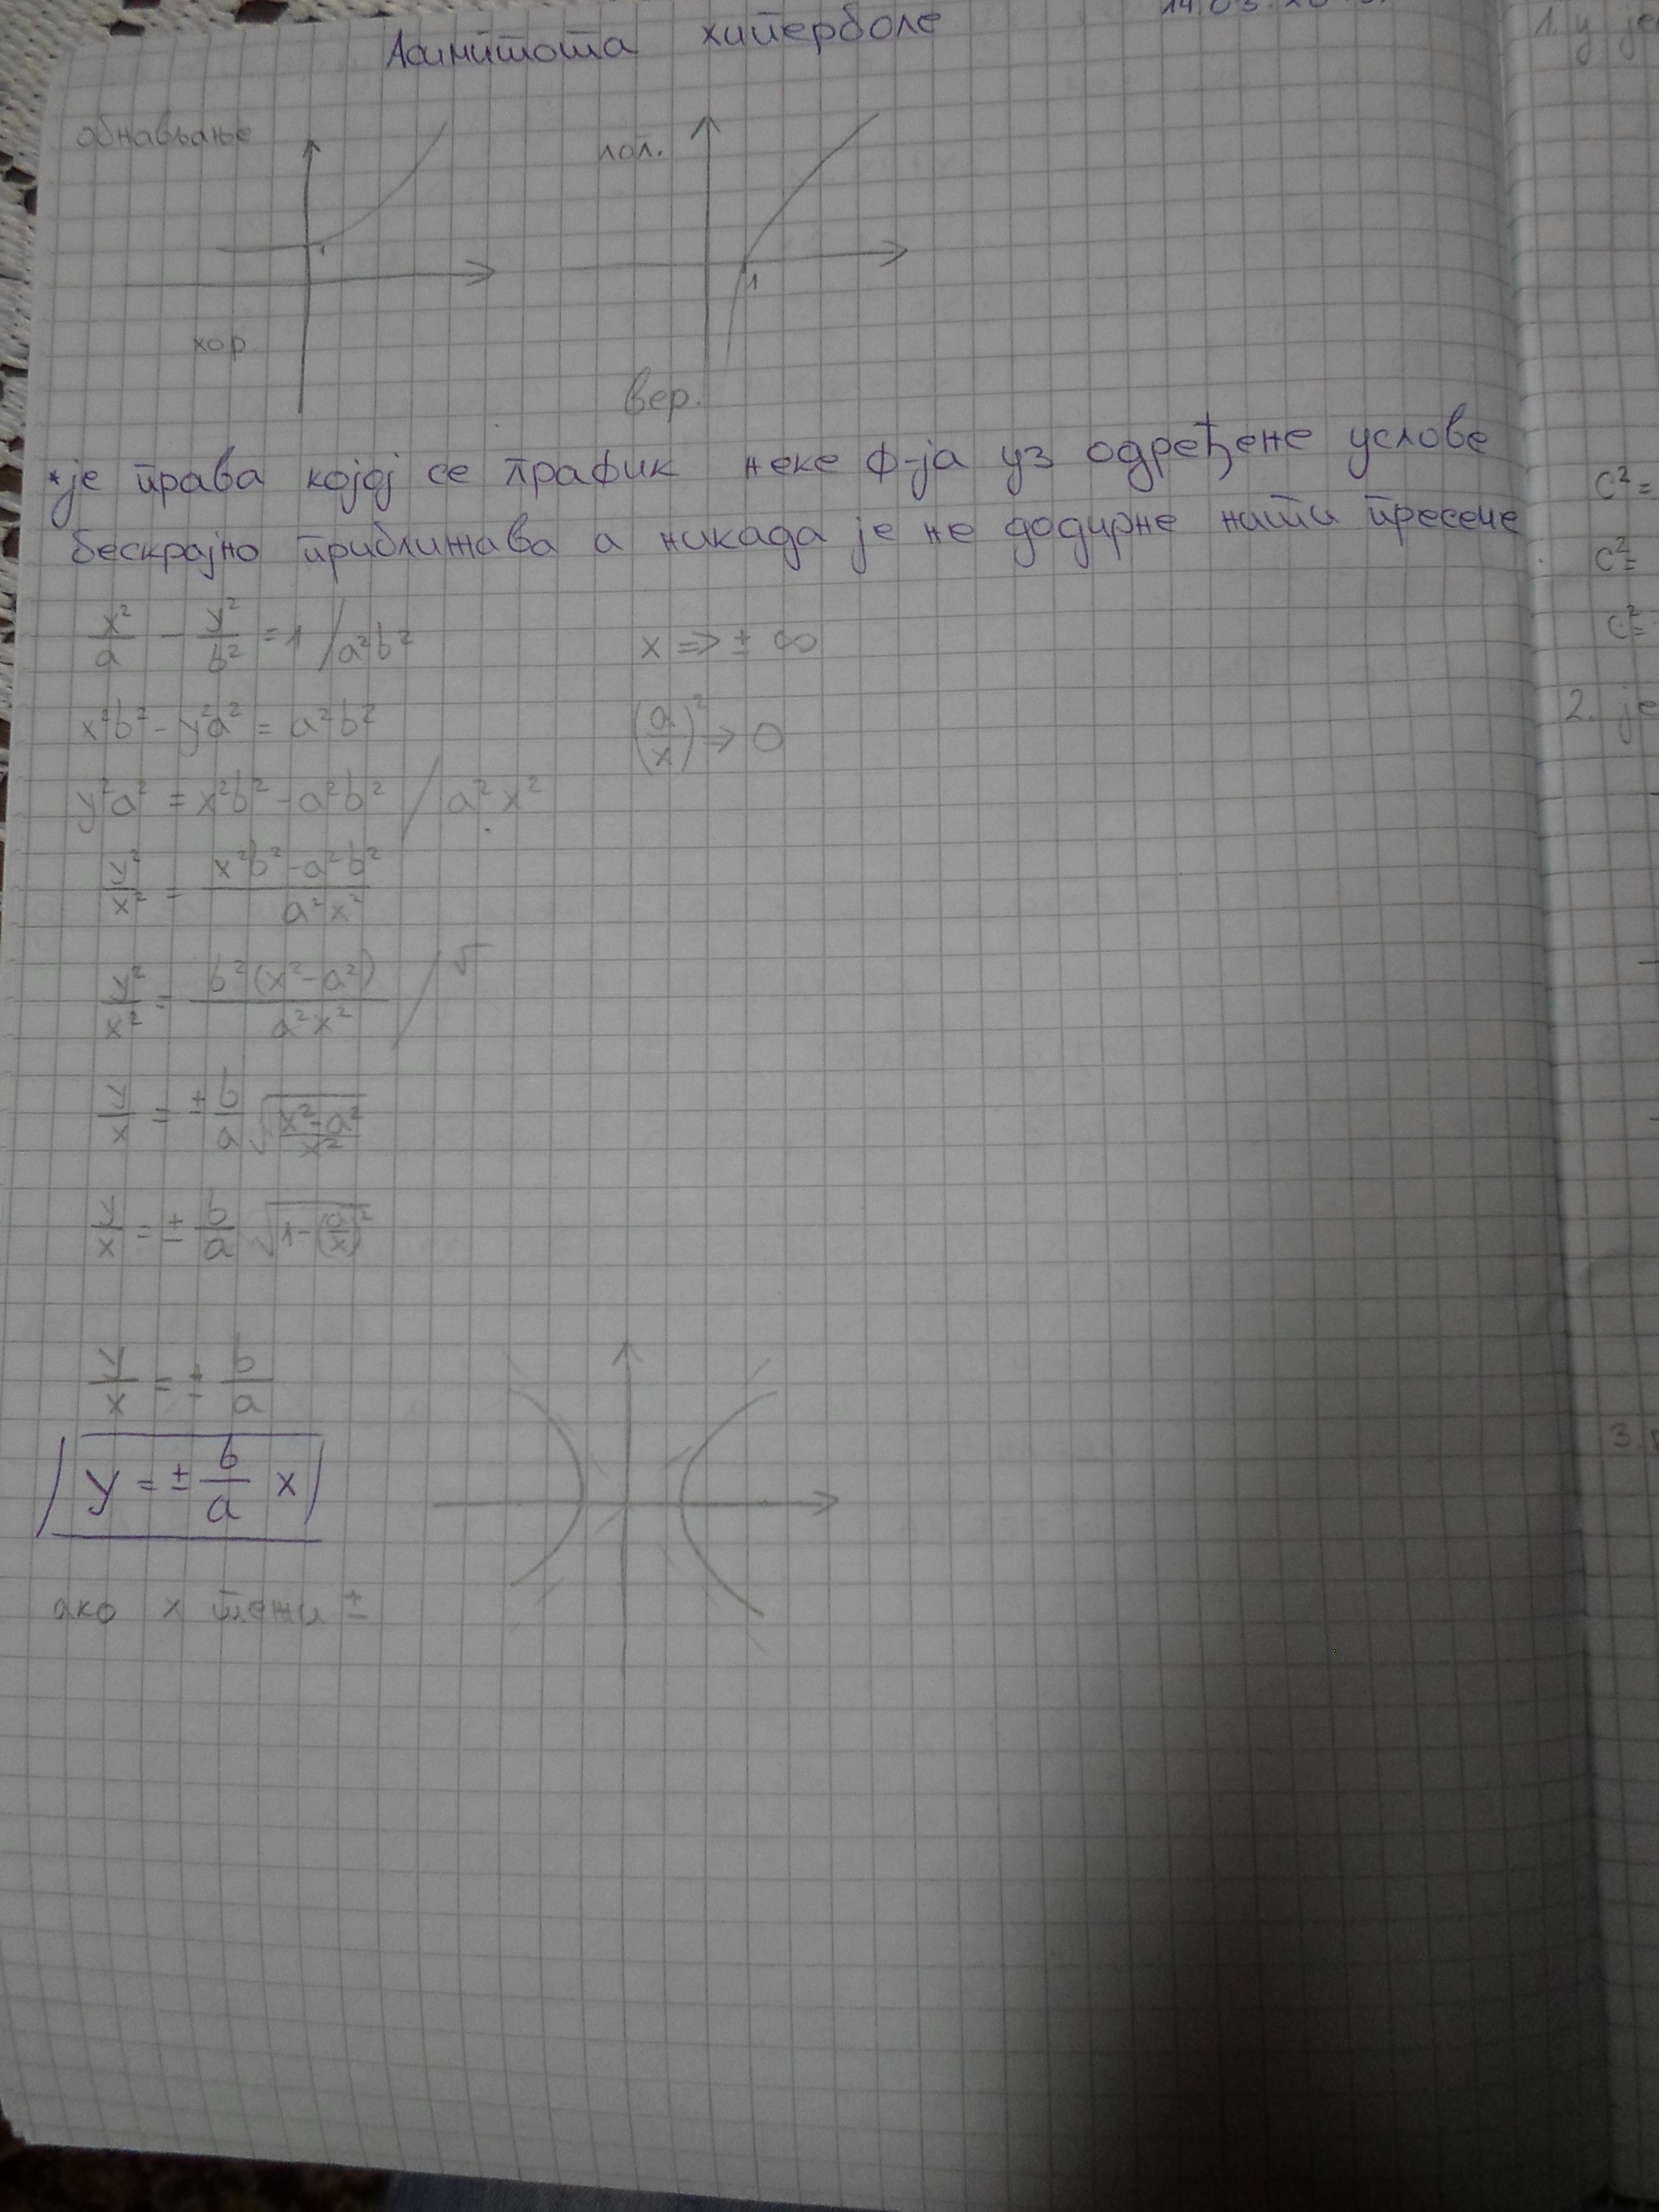 Асимптота хиперболе
14.03.20
обнављање
лог.
1
хор
вер.
*је права којој се график неке ф-ја уз одређене услове
бескрајно приближава а никада је не додирне нити пресече
x²/a - y²/b² = 1 / a²b²
x => ± ∞
x²b² - y²a² = a²b²
(a/x)² => 0
y²a² = x²b² - a²b² / a²x²
y²/x² = (x²b² - a²b²)/(a²x²)
y²/x² = b²(x² - a²)/(a²x²) / √
y/x = ± b/a √((x² - a²)/x²)
y/x = ± b/a √(1 - (a/x)²)
y/x = ± b/a
y = ± b/a x
ако x тежи ±
1. у је
c² =
c² =
c² =
2. је
3.